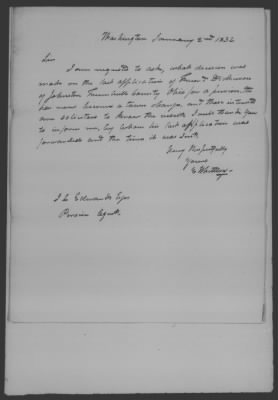 Washington January 2nd 1832
Sir
I am requested to ask, what decision was
made on the last application of
of Johnston Trumbull County Ohio for a pension,
has now become a town charge, and those interested
are solicitous to know the result. I will thank you
to inform me, by whom his last application was
forwarded and the time it was sent.
Very Respectfully
Yours
E Whittlesey
J L Edwards Esqr
Pension Agent.